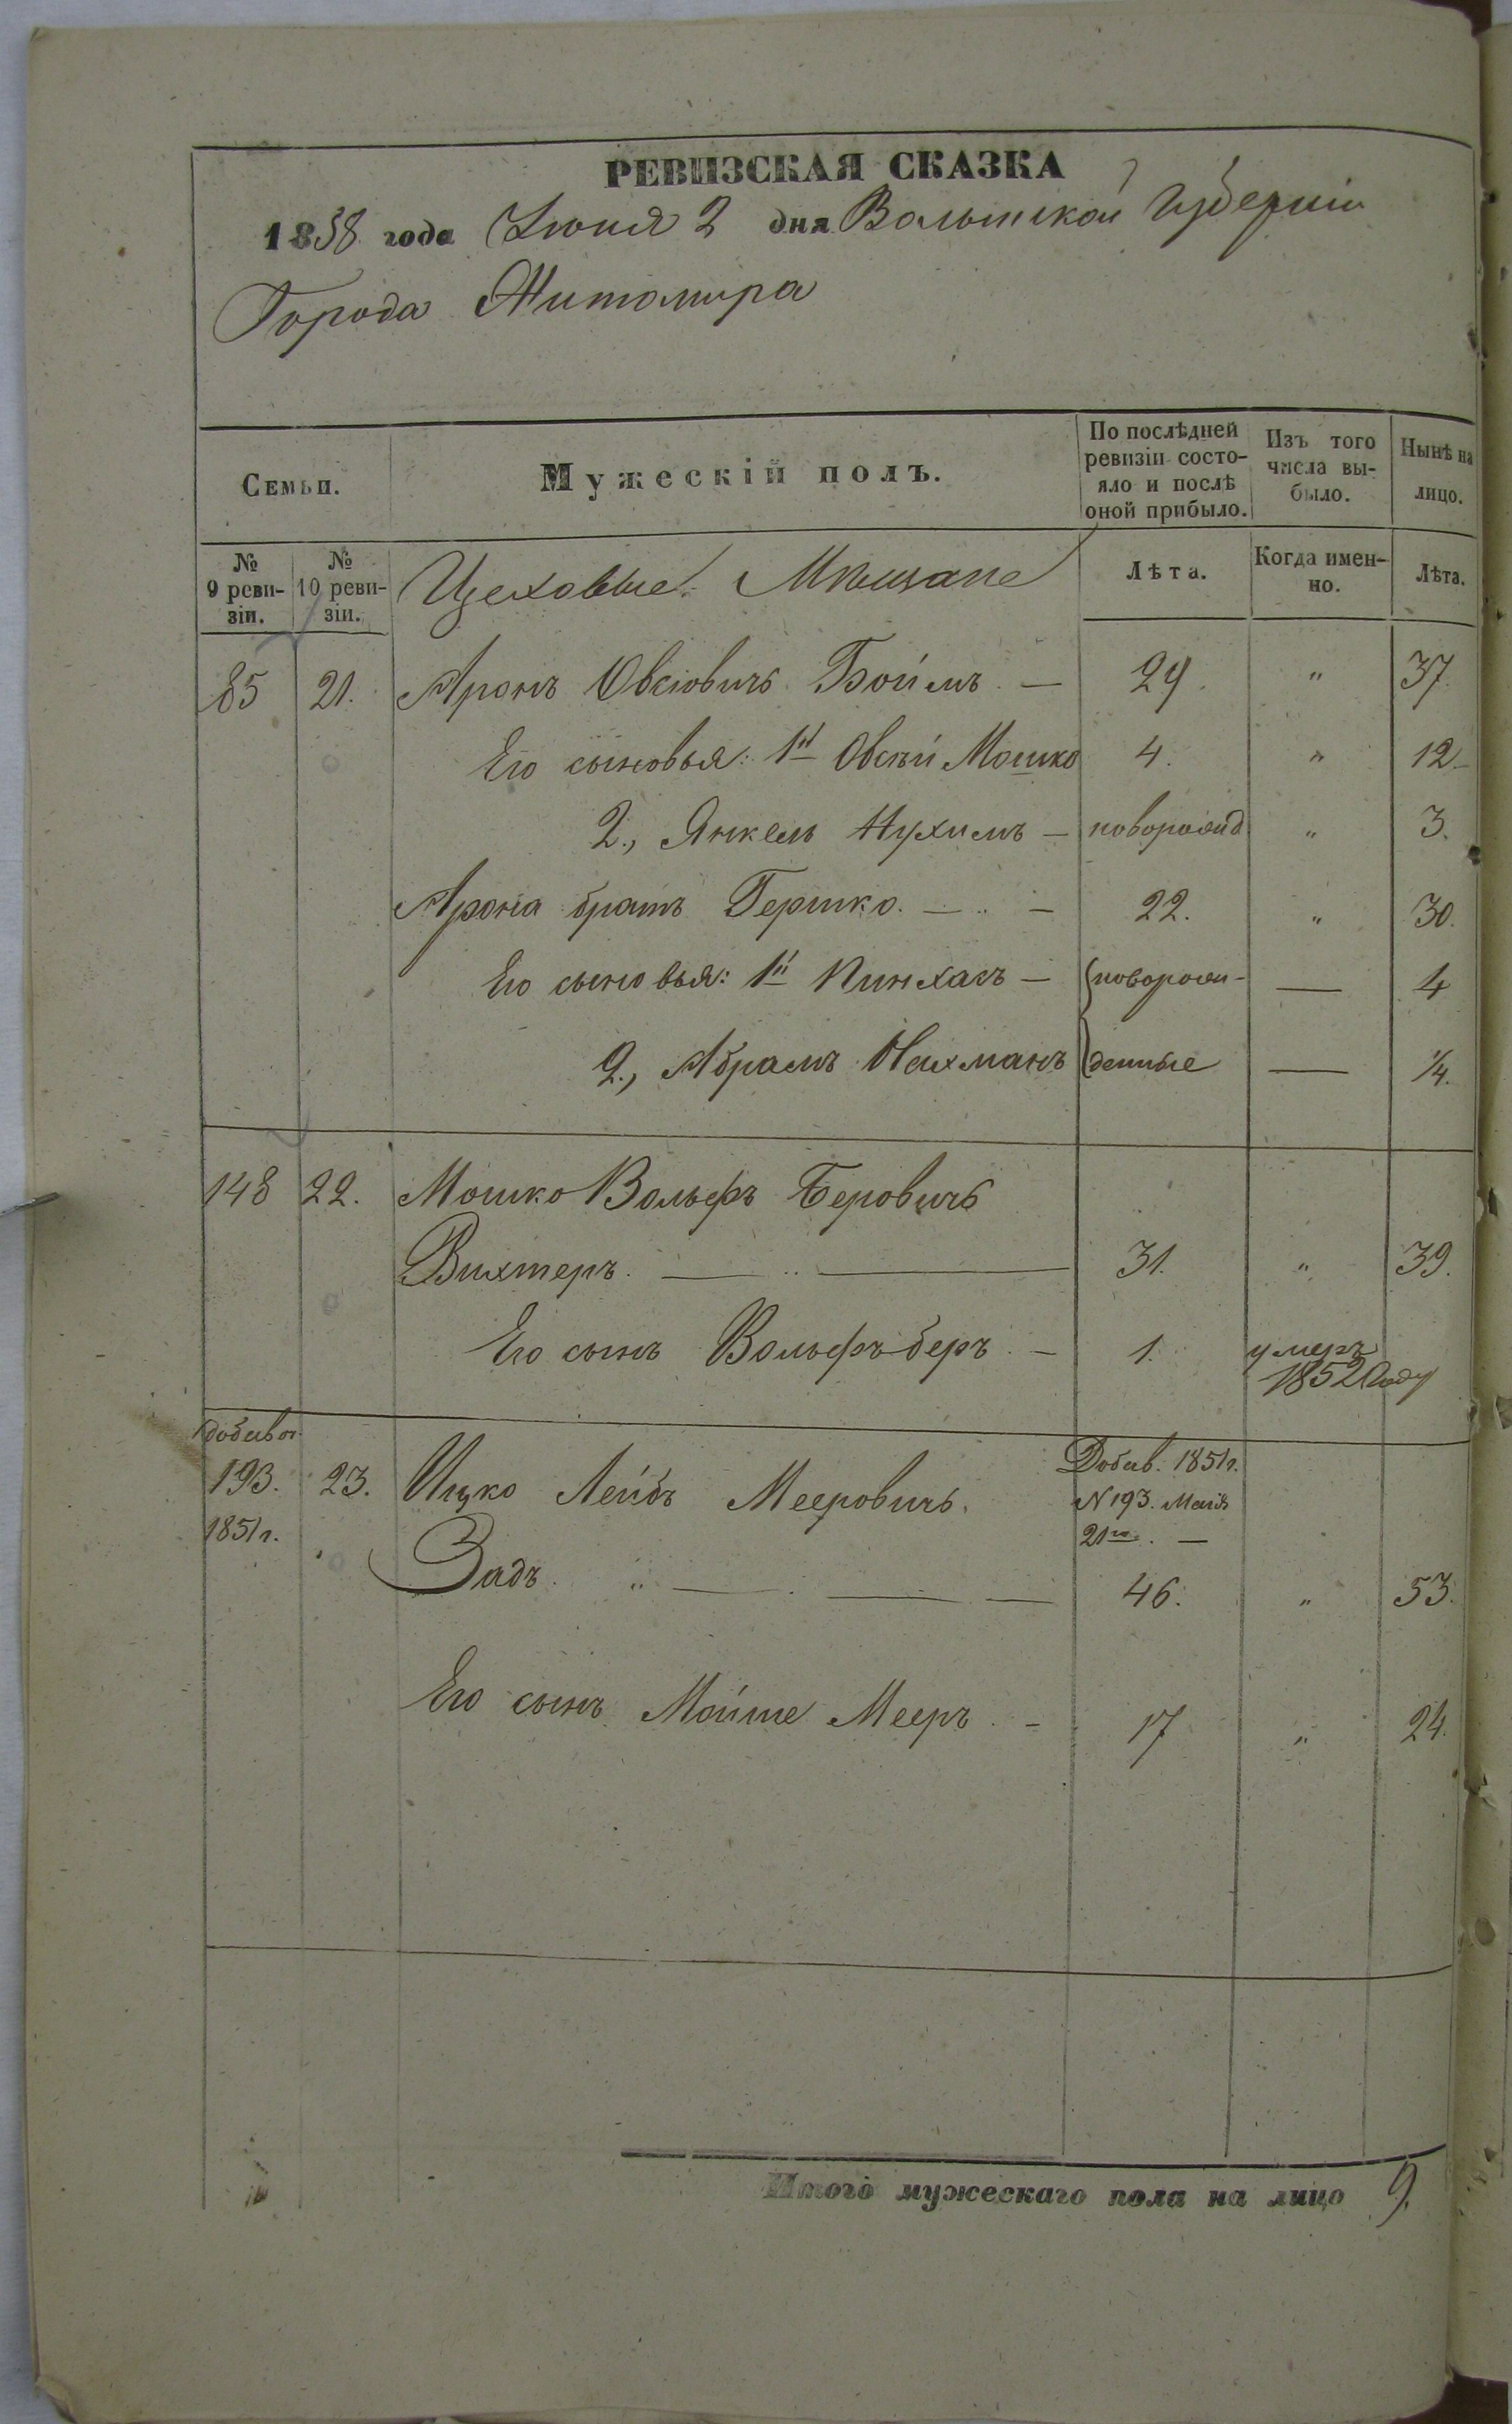 РЕВИЗСКАЯ СКАЗКА
1858 года Іюня 2 дня Волынской Губерніи
Города Житомира
Семьи.
Мужескій полъ.
По послѣдней ревизіи состо-
яло и послѣ оной прибыло.
Изъ того числа вы-
было.
Нынѣ на лицо.
№ 9 реви-
зіи.
№ 10 реви-
зіи.
Цеховые Мѣщане
Лѣта.
Когда имен-
но.
Лѣта.
85 21. Аронъ Овсіовичъ Боймъ. — 29. " 37.
Его сыновья: 1й Овсѣй Мошко 4. " 12
2., Янкель Нухимъ — новорожд " 3.
Арона братъ Гершко. — — 22. " 30.
Его сыновья: 1й Пинхасъ — новорож- — 4
2., Абрамъ Нахманъ денные — 1/4.
148 22. Мошко Вольфъ Беровичъ
Вихтеръ. — — 31. " 39.
Его сынъ Вольфъ-беръ. — 1. умеръ
1852 Году
добавоч. Добав. 1851г.
193. 23. Ицко Лейбъ Мееровичъ. N 193. Маія
1851г. 21го. —
Задъ. " — — — 46. " 53.
Его сынъ Мойше Мееръ. - 17 " 24.
Итого мужескаго пола на лицо 9.